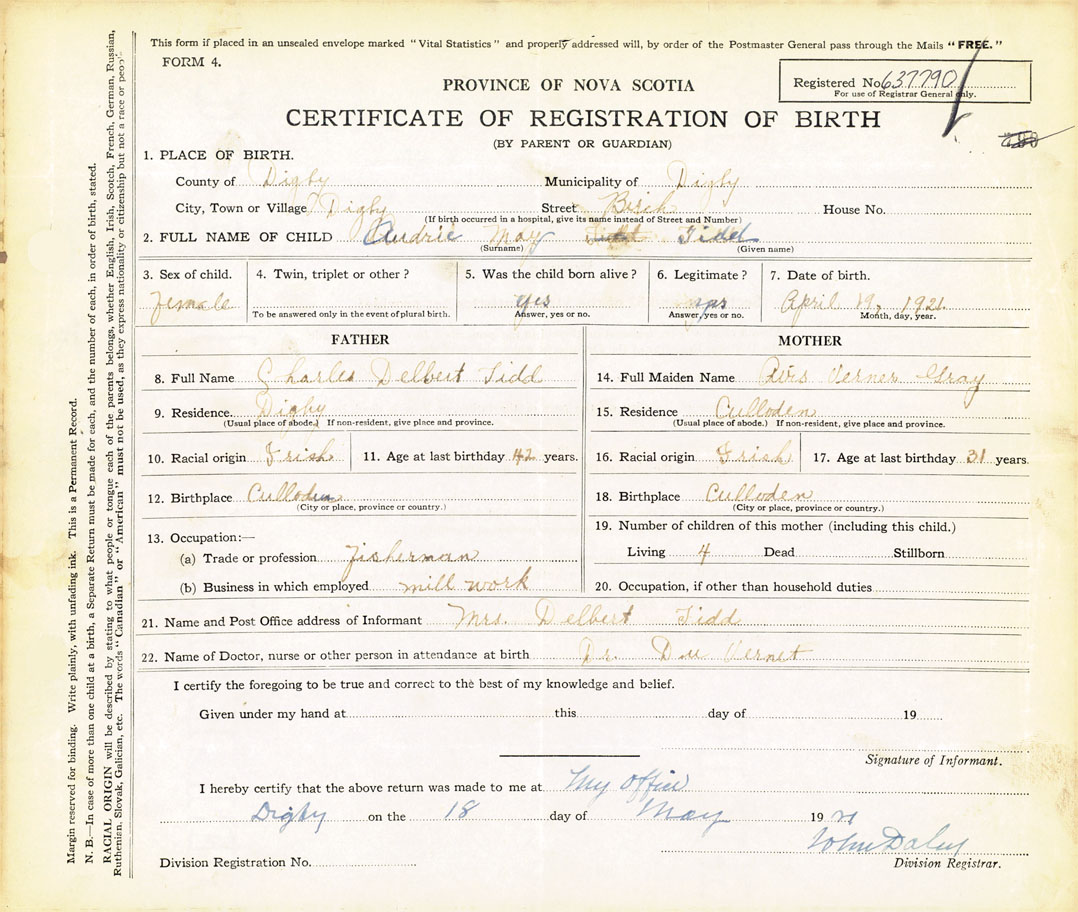 This form if placed in an unsealed envelope marked "Vital Statistics" and properly addressed will, by order of the Postmaster General pass through the Mails "FREE."
FORM 4.
Registered No. 637790
For use of Registrar General only.
PROVINCE OF NOVA SCOTIA
CERTIFICATE OF REGISTRATION OF BIRTH
(BY PARENT OR GUARDIAN)
1. PLACE OF BIRTH.
County of Digby Municipality of Digby
City, Town or Village Digby Street Birch House No.
(If birth occurred in a hospital, give its name instead of Street and Number)
2. FULL NAME OF CHILD Audrie May Tidd
(Surname) (Given name)
3. Sex of child. 4. Twin, triplet or other? 5. Was the child born alive? 6. Legitimate? 7. Date of birth.
Female yes yes April 19, 1921
To be answered only in the event of plural birth. Answer, yes or no. Answer, yes or no. Month, day, year.
FATHER MOTHER
8. Full Name Charles Delbert Tidd 14. Full Maiden Name Avis Verner Gray
9. Residence. Digby 15. Residence Culloden
(Usual place of abode.) If non-resident, give place and province. (Usual place of abode.) If non-resident, give place and province.
10. Racial origin Irish 11. Age at last birthday 42 years. 16. Racial origin Irish 17. Age at last birthday 31 years.
12. Birthplace Culloden 18. Birthplace Culloden
(City or place, province or country.) (City or place, province or country.)
13. Occupation:— 19. Number of children of this mother (including this child.)
(a) Trade or profession fisherman Living 4 Dead Stillborn
(b) Business in which employed mill work 20. Occupation, if other than household duties
21. Name and Post Office address of Informant Mrs. Delbert Tidd
22. Name of Doctor, nurse or other person in attendance at birth Dr. Du Vernet
I certify the foregoing to be true and correct to the best of my knowledge and belief.
Given under my hand at this day of 19
Signature of Informant.
I hereby certify that the above return was made to me at My Office
Digby on the 18 day of May 19 21
John Daley
Division Registration No. Division Registrar.
Margin reserved for binding. Write plainly, with unfading ink. This is a Permanent Record.
N. B.—In case of more than one child at a birth, a Separate Return must be made for each, and the number of each, in order of birth, stated.
RACIAL ORIGIN will be described by stating to what people or tongue each of the parents belongs, whether English, Irish, Scotch, French, German, Russian,
Ruthenian, Slovak, Galician, etc. The words "Canadian" or "American" must not be used, as they express nationality or citizenship but not a race or people